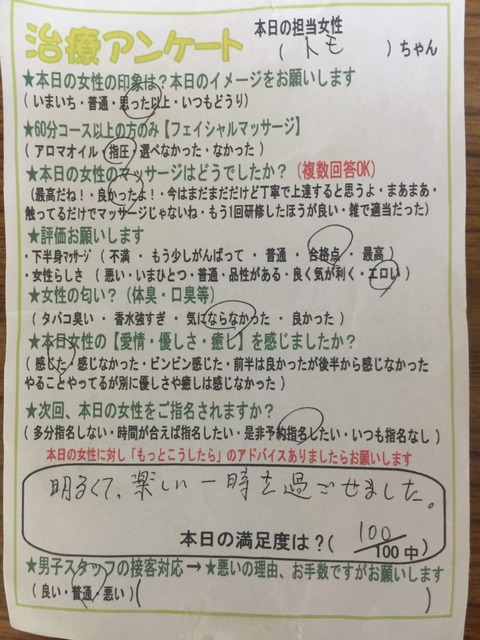 治療アンケート
本日の担当女性
( トモ )ちゃん
★本日の女性の印象は?本日のイメージをお願いします
(いまいち・普通・思った以上・いつもどうり)
★60分コース以上の方のみ【フェイシャルマッサージ】
( アロマオイル・指圧・選べなかった・なかった )
★本日の女性のマッサージはどうでしたか?(複数回答OK)
(最高だね!・良かったよ!・今はまだまだだけど丁寧で上達すると思うよ・まあまあ・
触ってるだけでマッサージじゃないね・もう1回研修したほうが良い・雑で適当だった)
★評価お願いします
・下半身マッサージ ( 不満 ・ もう少しがんばって ・ 普通 ・ 合格点 ・ 最高 )
・女性らしさ ( 悪い・いまひとつ・普通・品性がある・良く気が利く・エロい )
★女性の匂い?(体臭・口臭等)
( タバコ臭い ・ 香水強すぎ ・ 気にならなかった ・ 良かった )
★本日女性の【愛情・優しさ・癒し】を感じましたか?
( 感じた・感じなかった・ビンビン感じた・前半は良かったが後半から感じなかった
やることやってるが別に優しさや癒しは感じなかった )
★次回、本日の女性をご指名されますか?
( 多分指名しない・時間が合えば指名したい・是非予約指名したい・いつも指名なし )
本日の女性に対し「もっとこうしたら」のアドバイスありましたらお願いします
明るくて、楽しい一時を過ごせました。
本日の満足度は?( 100/100中)
★男子スタッフの接客対応→★悪いの理由、お手数ですがお願いします
( 良い・普通・悪い )( )